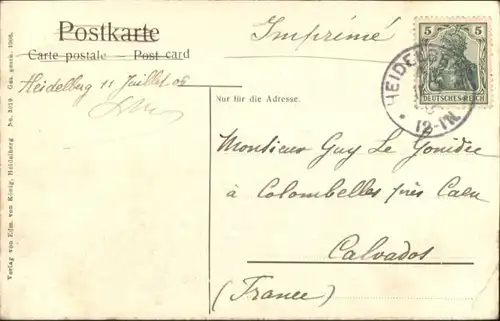 Postkarte
Carte postale — Post card
Imprimé
5 5
DEUTSCHES REICH
HEIDELBERG
12-1N.
Heidelbug 11 Juillet 06
Nur für die Adresse.
Monsieur Guy Le Gonidec
à Colombelles près Caen
Calvados
(France)
Verlag von Edm. von König, Heidelberg No. Ges. gesch. 1906.